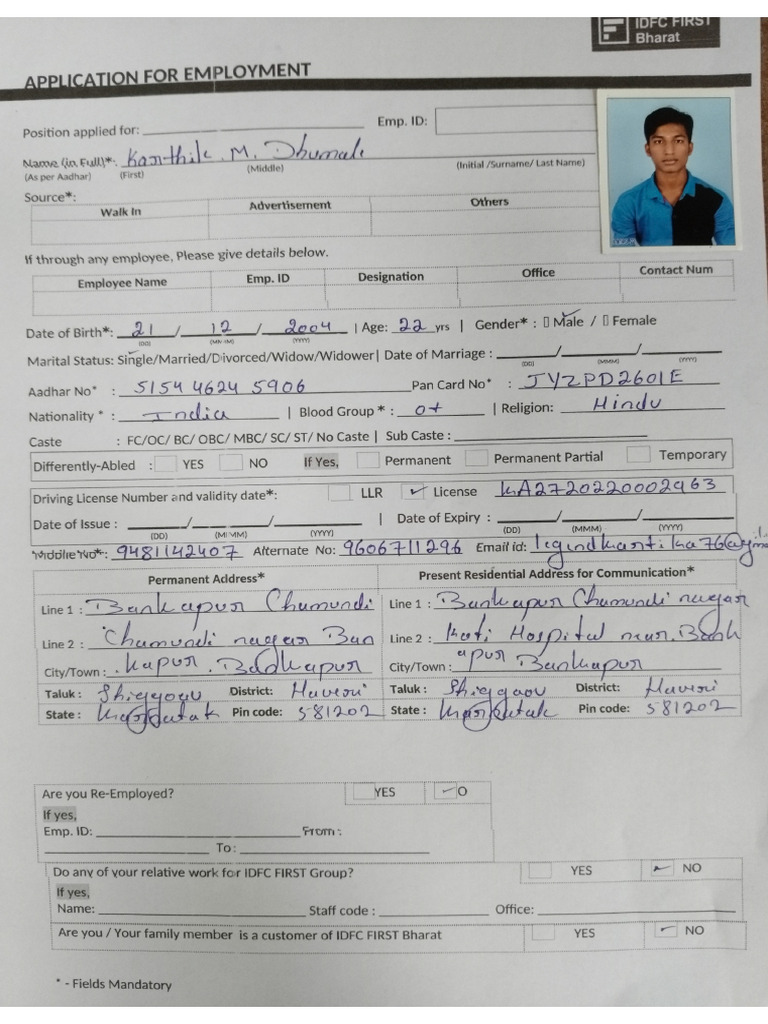 IDFC FIRST
Bharat
APPLICATION FOR EMPLOYMENT
Position applied for: Emp. ID:
Name (in Full)*: Karthik. M. Dhumale
(As per Aadhar) (First) (Middle) (Initial /Surname/ Last Name)
Source*:
Walk In Advertisement Others
If through any employee, Please give details below.
Employee Name Emp. ID Designation Office Contact Num
Date of Birth*: 21 / 12 / 2004 | Age: 22 yrs | Gender* : Male / Female
(DD) (MMM) (YYYY)
Marital Status: Single/Married/Divorced/Widow/Widower | Date of Marriage : / /
(DD) (MMM) (YYYY)
Aadhar No* : 5154 4624 5906 Pan Card No* : JYZPD2601E
Nationality * : India | Blood Group * : O+ | Religion: Hindu
Caste : FC/OC/ BC/ OBC/ MBC/ SC/ ST/ No Caste | Sub Caste :
Differently-Abled : YES NO If Yes, Permanent Permanent Partial Temporary
Driving License Number and validity date*: LLR ✓ License KA2720220002963
Date of Issue : / / | Date of Expiry : / /
(DD) (MMM) (YYYY) (DD) (MMM) (YYYY)
Mobile No*: 9481142407 Alternate No: 9606711296 Email id:
Permanent Address* Present Residential Address for Communication*
Line 1 : Bankapur Chamundi Line 1 : Bankapur Chamundi nagar
Line 2 : Chamundi nagar Ban Line 2 : Koti Hospital near. Bank
City/Town : kapur. Bankapur City/Town : apur Bankapur
Taluk : Shiggaov District: Haveri Taluk : Shiggaov District: Haveri
State : Karnatak Pin code: 581202 State : Karnatak Pin code: 581202
Are you Re-Employed? YES O
If yes,
Emp. ID: From :
To :
Do any of your relative work for IDFC FIRST Group? YES NO
If yes,
Name: Staff code : Office:
Are you / Your family member is a customer of IDFC FIRST Bharat YES NO
* - Fields Mandatory